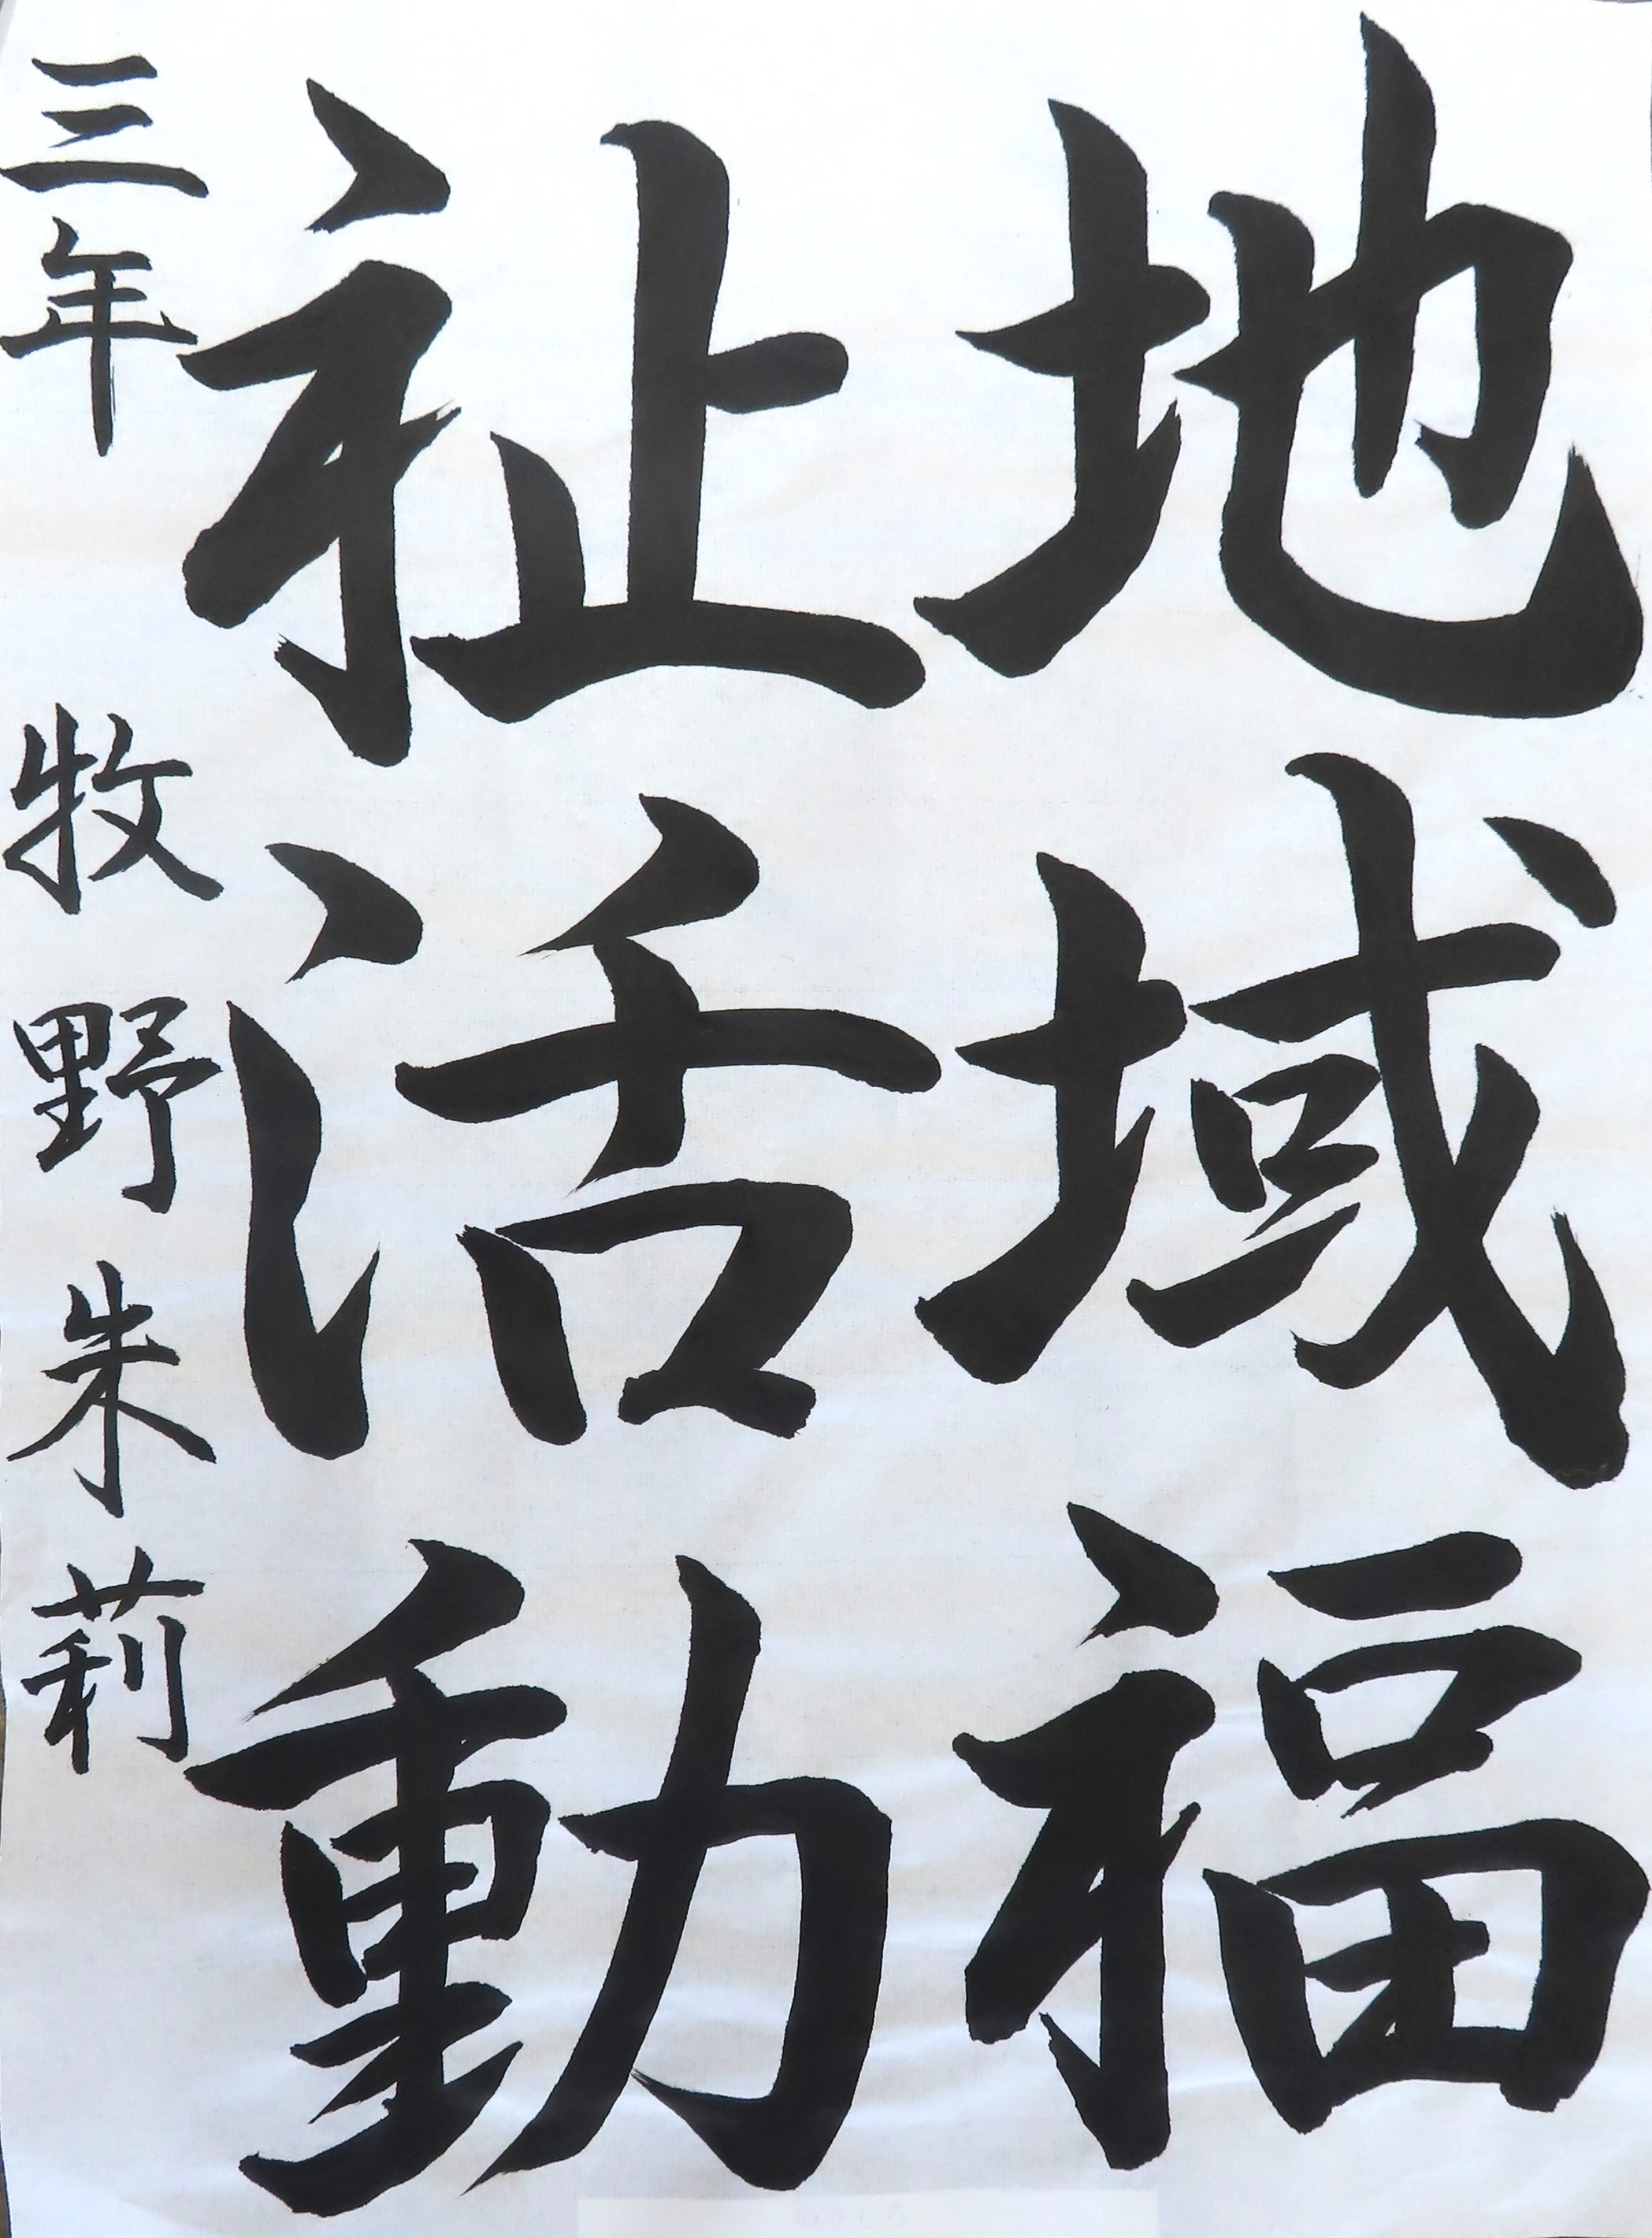 地域福
祉活動
三年 牧野朱莉